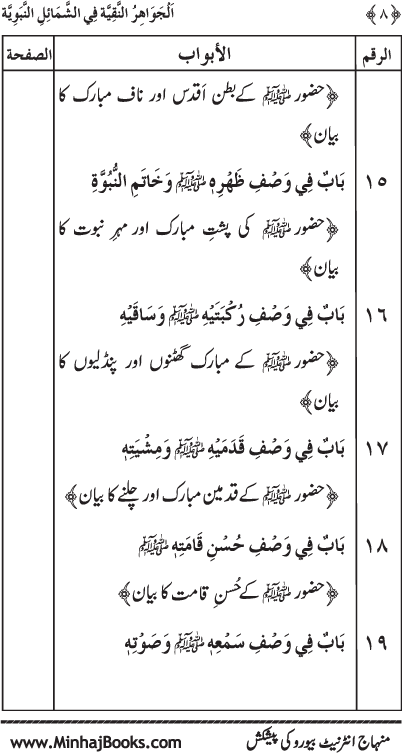 ﴿٨﴾ اَلْجَوَاهِرُ النَّقِيَّة فِي الشَّمَائِلِ النَّبَوِيَّة
الرقم الأبواب الصفحة
﴿حضور ﷺ کے بطنِ اَقدس اور ناف مبارک کا
بیان﴾
١٥ بَابٌ فِي وَصْفِ ظَهْرِهِ ﷺ وَخَاتَمِ النُّبُوَّةِ
﴿حضور ﷺ کی پشتِ مبارک اور مہرِ نبوت کا
بیان﴾
١٦ بَابٌ فِي وَصْفِ رُكْبَتَيْهِ ﷺ وَسَاقَيْهِ
﴿حضور ﷺ کے مبارک گھٹنوں اور پنڈلیوں کا
بیان﴾
١٧ بَابٌ فِي وَصْفِ قَدَمَيْهِ ﷺ وَمِشْيَتِهِ
﴿حضور ﷺ کے قدمین مبارک اور چلنے کا بیان﴾
١٨ بَابٌ فِي وَصْفِ حُسْنِ قَامَتِهِ ﷺ
﴿حضور ﷺ کے حُسنِ قامت کا بیان﴾
١٩ بَابٌ فِي وَصْفِ سَمْعِهِ ﷺ وَصَوْتِهِ
منہاج انٹرنیٹ بیورو کی پیشکش www.MinhajBooks.com